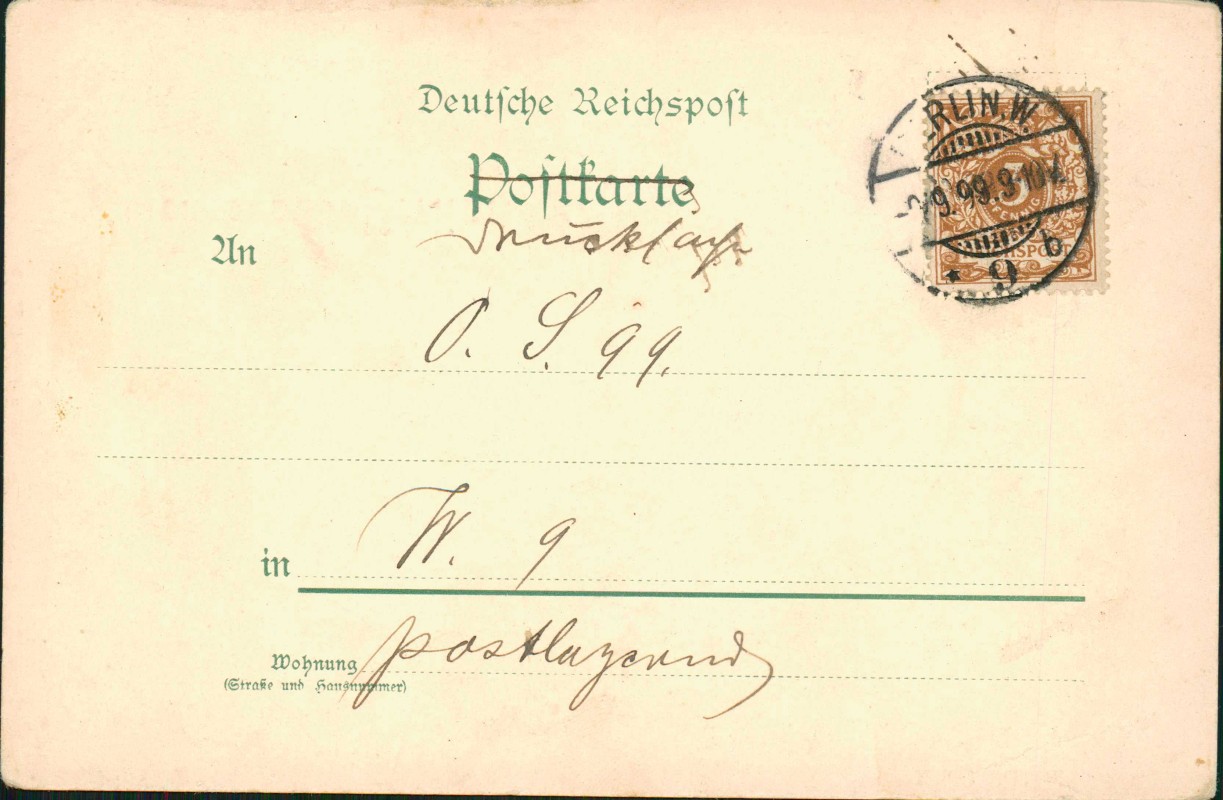 Deutsche Reichspost
Postkarte
Drucksache
An
O. S. 99.
in W. 9
Wohnung postlagernd
(Straße und Hausnummer)
BERLIN. W.
9. 99. 9-10 V.
* 9 b
3
PFENNIG
REICHSPOST